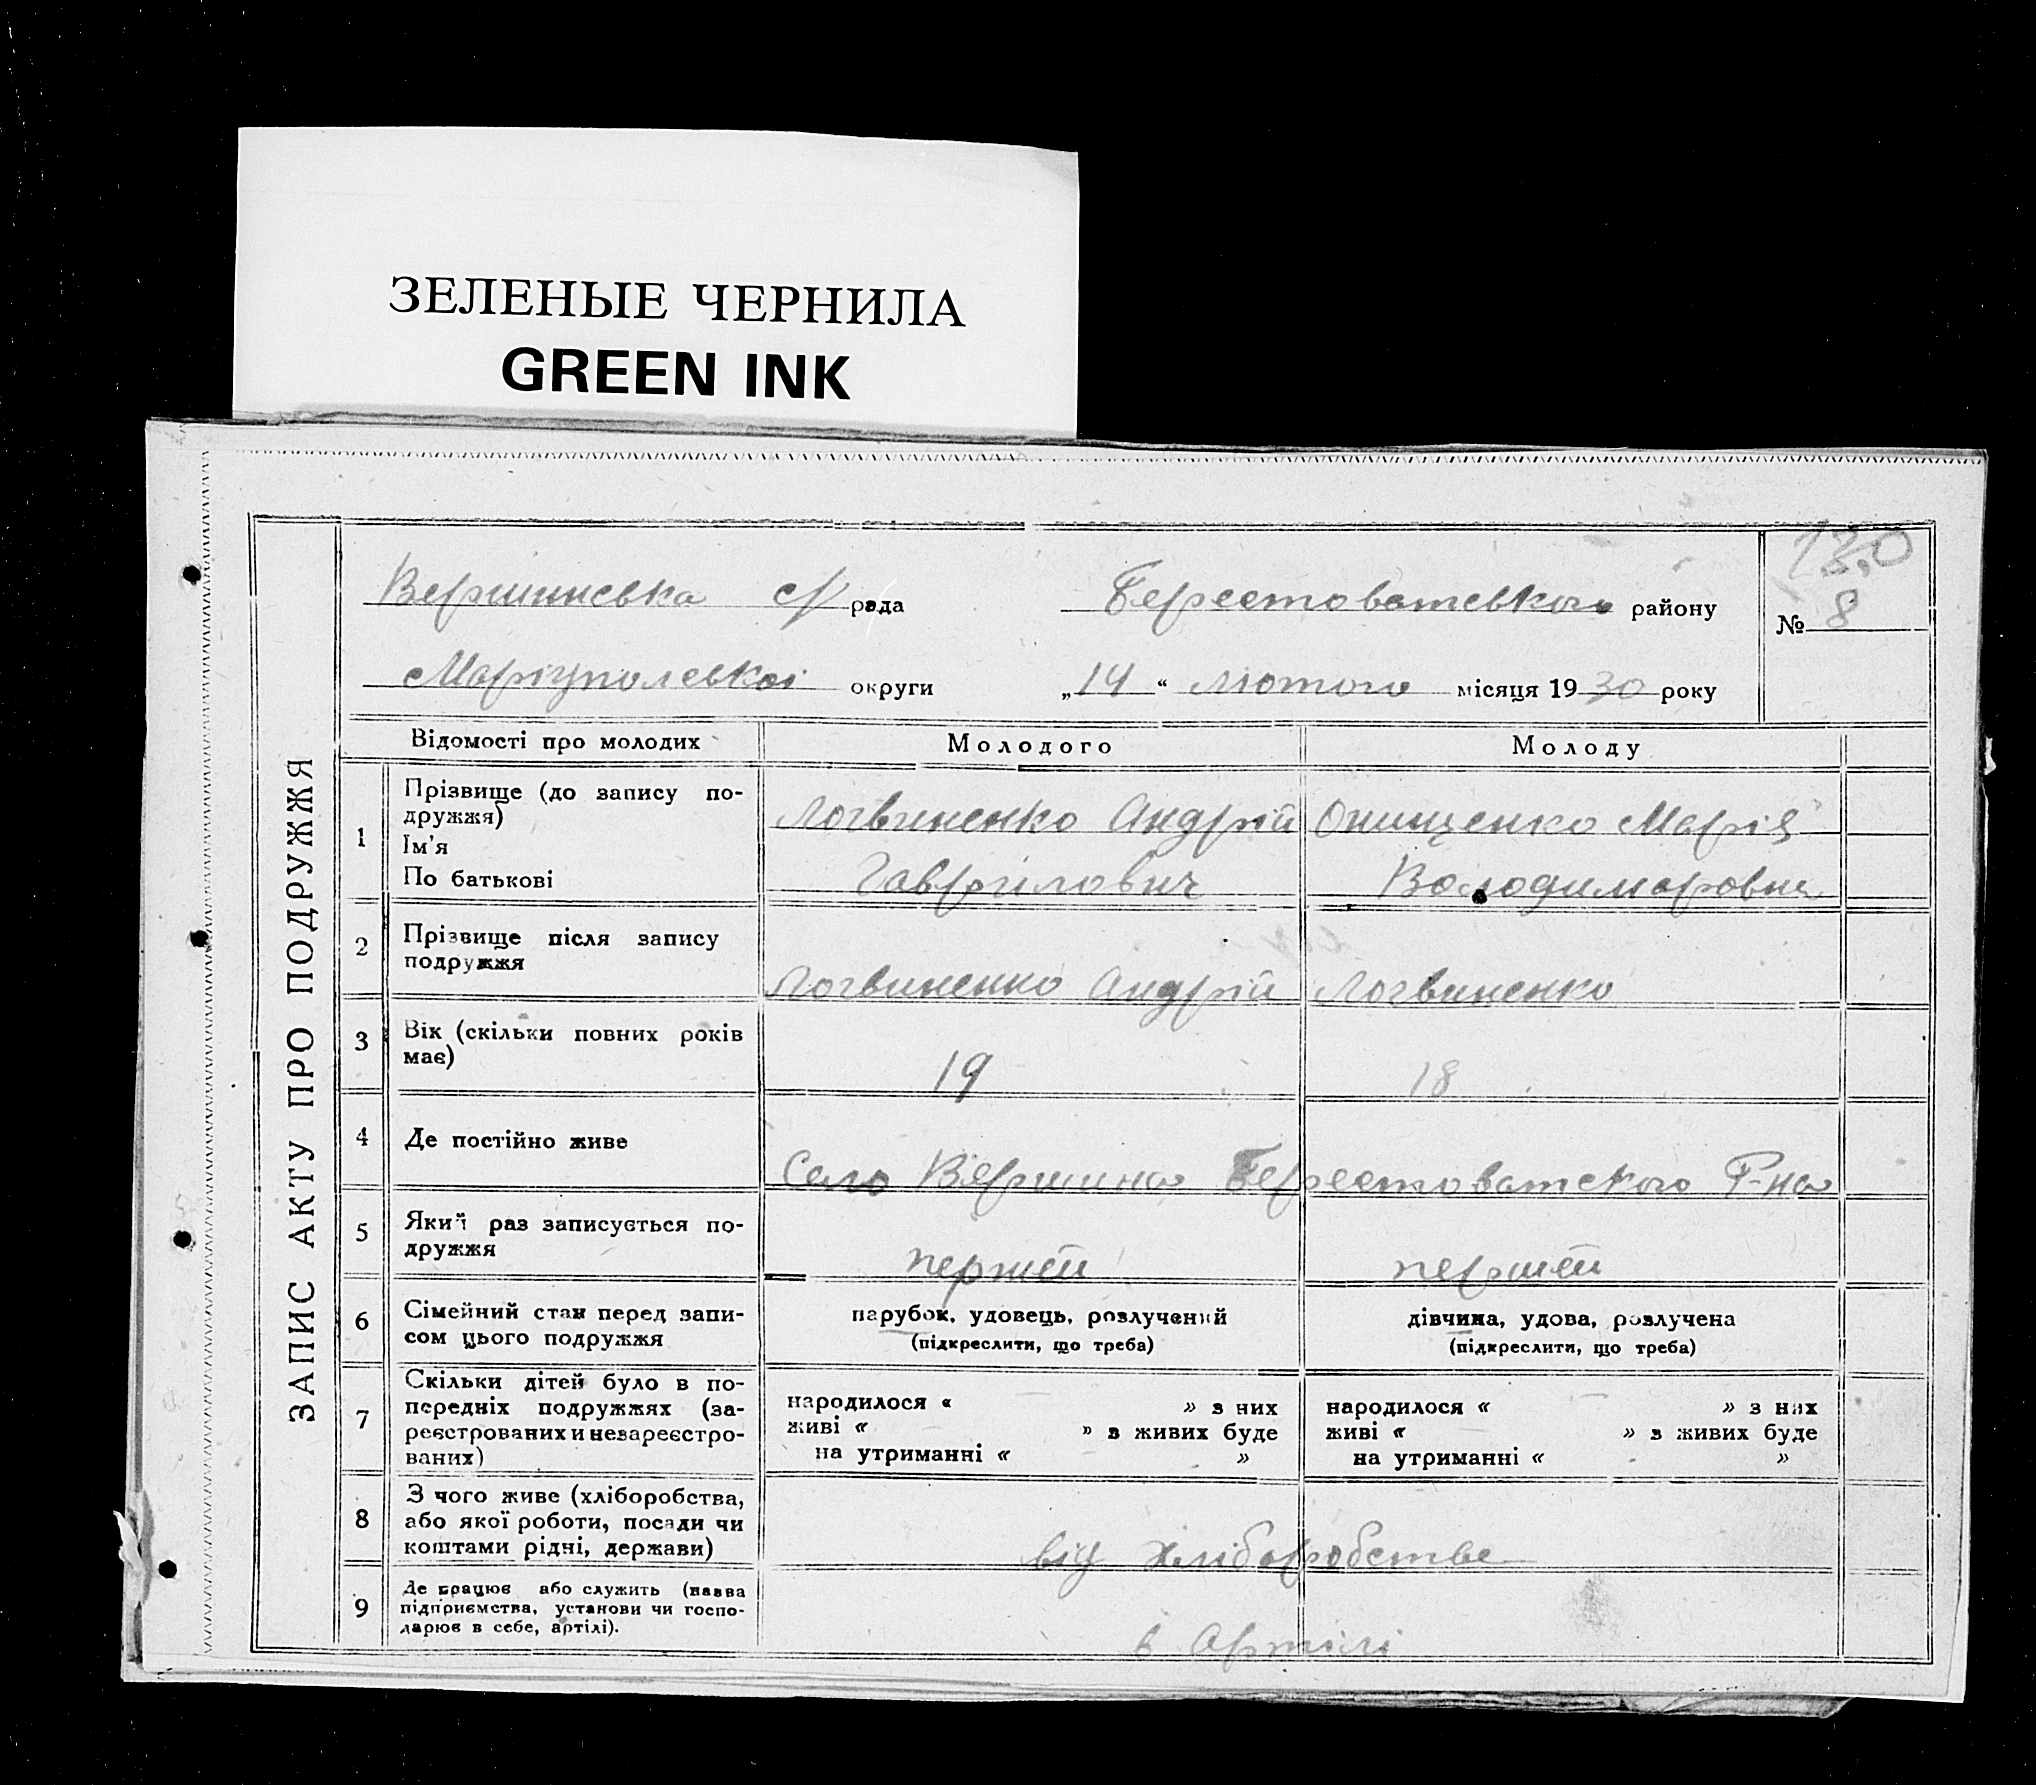 ЗЕЛЕНЫЕ ЧЕРНИЛА
GREEN INK
ЗАПИС АКТУ ПРО ПОДРУЖЖЯ
Вершинська с/ рада Берестоватського району
130
№ 8
Маріупольскої округи „14“ лютого місяця 1930 року
Відомості про молодих Молодого Молоду
1 Прізвище (до запису по-
дружжя)
Ім'я
По батькові
Логвиненко Андрій
Гаврилович
Онищенко Марія
Володимировна
2 Прізвище після запису
подружжя
Логвиненко Андрій Логвиненко
3 Вік (скільки повних років
має)
19 18
4 Де постійно живе
Село Вершина Берестоватского Р-на
5 Який раз записується по-
дружжя
перший перший
6 Сімейний стан перед запи-
сом цього подружжя
парубок, удовець, розлучений
(підкреслити, що треба)
дівчина, удова, розлучена
(підкреслити, що треба)
7 Скільки дітей було в по-
передніх подружжях (за-
реєстрованих и незареєстро-
ваних)
народилося « » з них
живі « » з живих буде
на утриманні « »
народилося « » з них
живі « » з живих буде
на утриманні « »
8 З чого живе (хліборобства,
або якої роботи, посади чи
коштами рідні, держави)
від хліборобства
9 Де працює або служить (назва
підприємства, установи чи госпо-
дарює в себе, артілі).
в Артілі